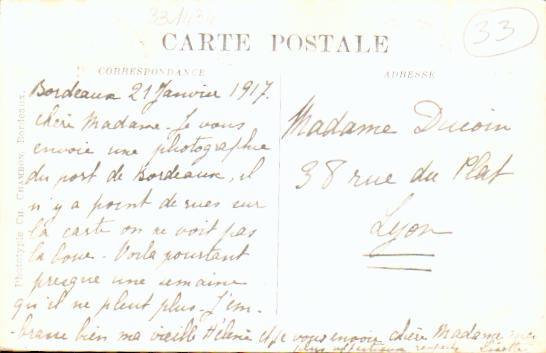 33
CARTE POSTALE
CORRESPONDANCE
ADRESSE
Bordeaux 21 Janvier 1917.
Chère Madame. Je vous
envoie une photographie
du port de Bordeaux, il
n'y a point de rues sur
la carte on ne voit pas
la boue. Voilà pourtant
presque une semaine
qu'il ne pleut plus. J'em-
-brasse bien ma vieille Hélène et je vous envoie chère Madame mes
plus affectueux respects
Madame Ducoin
38 rue du Plat
Lyon
Phototypie CH. CHAMBON, Bordeaux.